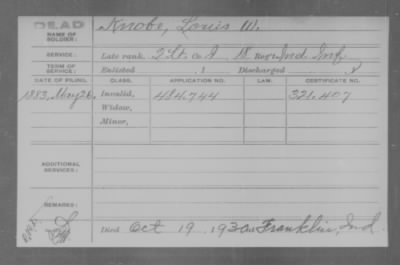 DEAD
NAME OF SOLDIER: Knobe, Louis W.
SERVICE: Late rank, 2 Lt. Co I, 18 Reg't Ind. Inf.
TERM OF SERVICE: Enlisted , 1 Discharged , 1
DATE OF FILING. CLASS. APPLICATION NO. LAW. CERTIFICATE NO.
1883, May 26. Invalid, 484.744 321.407
Widow,
Minor,
ADDITIONAL SERVICES:
REMARKS:
Died Oct 19, 1930 at Franklin, Ind.